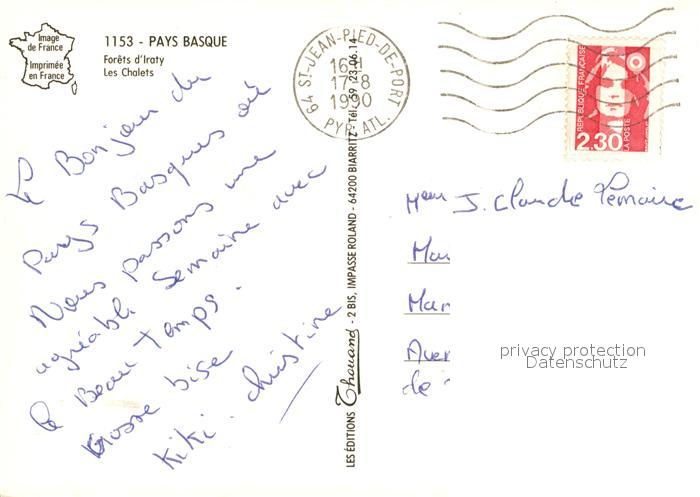 Image
de France
Imprimée
en France
1153 - PAYS BASQUE
Forêts d'Iraty
Les Chalets
64 ST-JEAN-PIED-DE-PORT
16H
17-8
1990
PYR. ATL.
REPUBLIQUE FRANÇAISE
2.30
LA POSTE
Le Bonjour du
Pays Basques où
Nous passons une
agréable Semaine avec
le Beau Temps.
Grosse bise
Kiki. Christine
LES ÉDITIONS Thouand - 2 BIS, IMPASSE ROLAND - 64200 BIARRITZ - Tél. 59 23.06.14
J. Claude Lemaire
Mar
privacy protection
Datenschutz